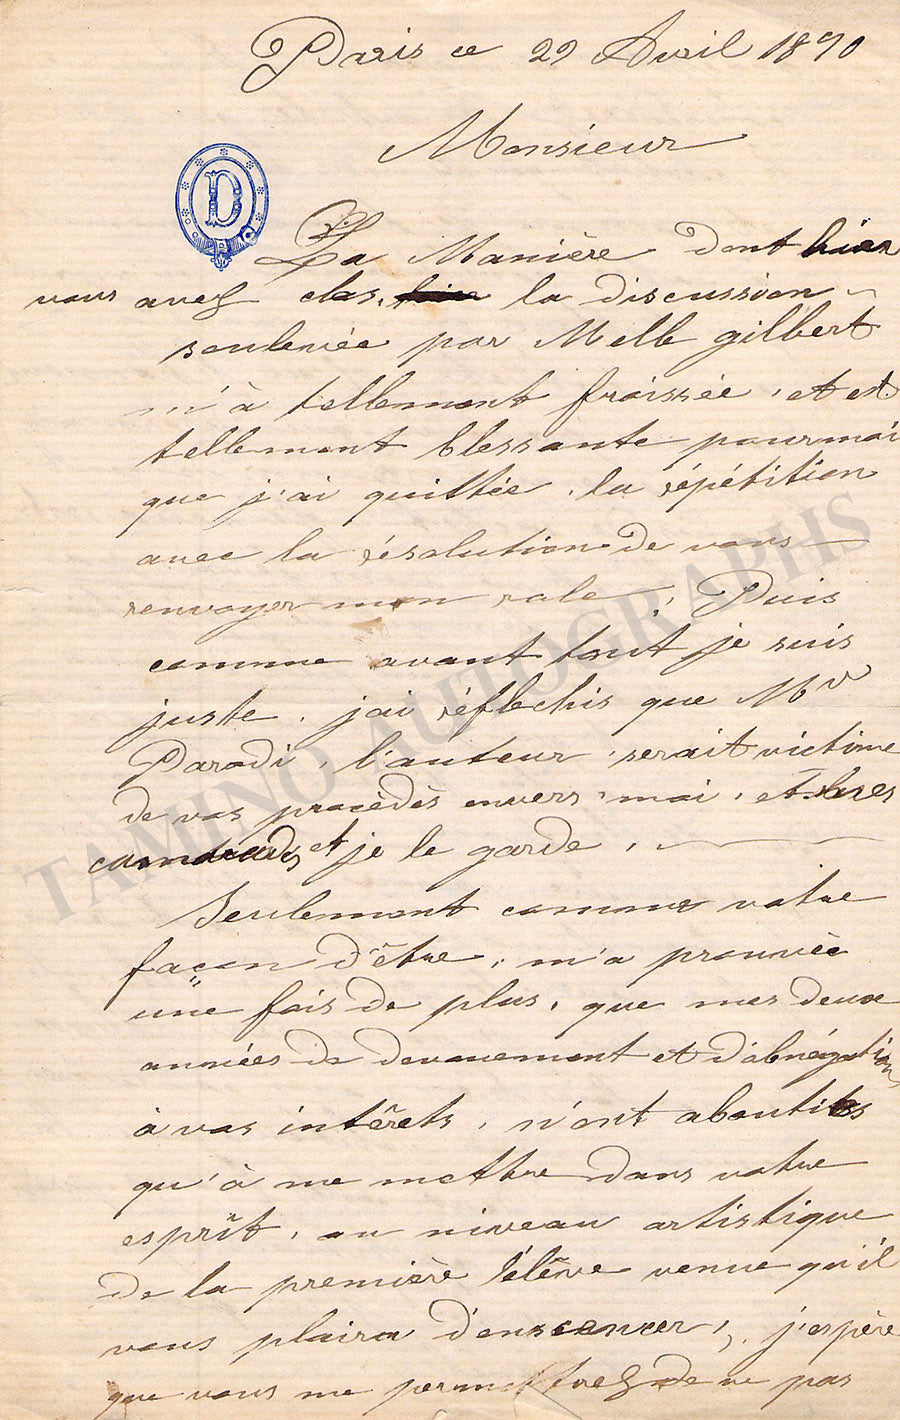 Paris ce 22 Avril 1890
Monsieur
D
La Manière dont hier
vous avez clos, la discussion
soulevée par Melle gilbert
m'à tellement froissée, et est
tellement blessante pour moi
que j'ai quittée, la répétition
avec la résolution de vous
renvoyer mon role, Puis
comme avant tout je suis
juste, j'ai réflechis que Mr
Parodi, l'auteur, serait victime
de vos procèdès envers moi, et
camarades et je le garde,
Seulement comme votre
façon d'être, m'a prouvée
une fois de plus, que mes deux
années de devouement et d'abnégation
à vos intêrets, n'ont aboutites
qu'à me mettre dans votre
esprit, au niveau artistique
de la première élêve venue qu'il
vous plaira d'enscencer, j'espère
que vous me permettrez de ne pas
TAMINO AUTOGRAPHS